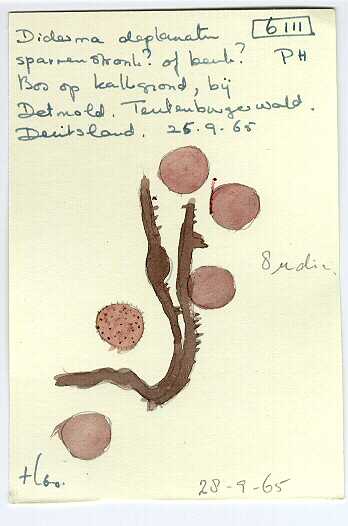 Diderma deplanatum
6 III
sparrenstronk? of beuk?
PH
Bos op kalkgrond, bij
Detmold. Teutenburgerwald.
Deutsland. 25-9-65
8 μ dia.
28-9-65